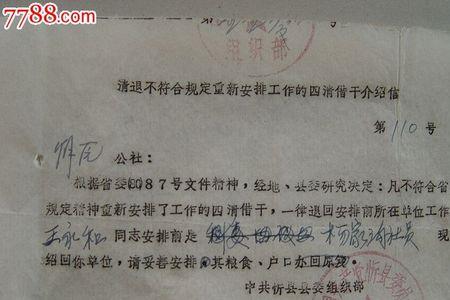 7788.com
组织部
清退不符合规定重新安排工作的四清借干介绍信
第110号
公社：
根据省委（80）87号文件精神，经地、县委研究决定：凡不符合省
规定精神重新安排了工作的四清借干，一律退回安排前所在单位工作
王永和同志安排前是 杨家湾社员 现
绍回你单位，请妥善安排，其粮食、户口亦回原
中共忻县县委组织部